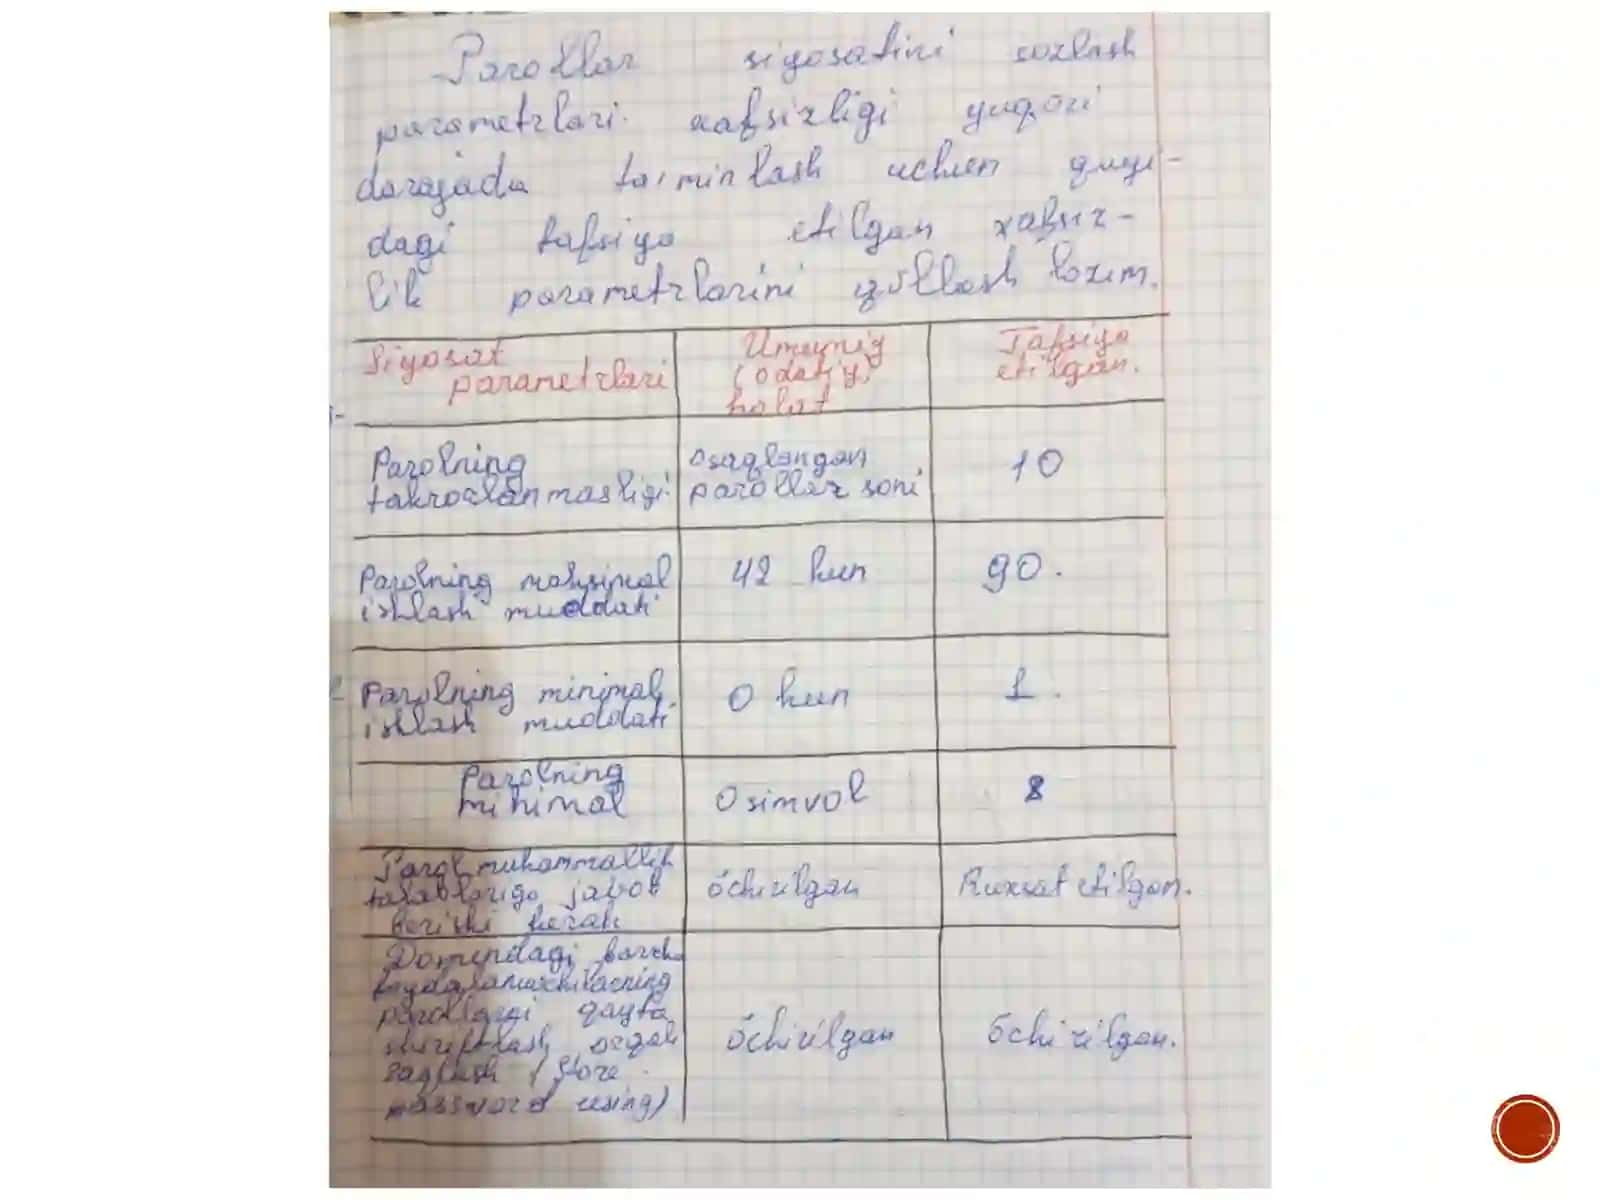 Parollar siyosatini sozlash
parametrlari. xafsizligi yuqori
darajada ta'minlash uchun quyi-
dagi tafsiya etilgan xafsiz-
lik parametrlarini qo'llash lozim.
Siyosat parametrlari
Umumiy (odatiy) holat
Tafsiya etilgan.
Parolning takrorlanmasligi.
0 saqlangan parollar soni
10
Parolning maksimal ishlash muddati
42 kun
90.
Parolning minimal ishlash muddati.
0 kun
1.
Parolning minimal
0 simvol
8
Parol mukammallik
talablariga javob
berishi kerak
óchirilgan
Ruxsat etilgan.
Domendagi barcha
foydalanuvchilarning
parollarni qayta
shifrlash orqali
saqlash (Store
password using)
óchirilgan
óchirilgan.